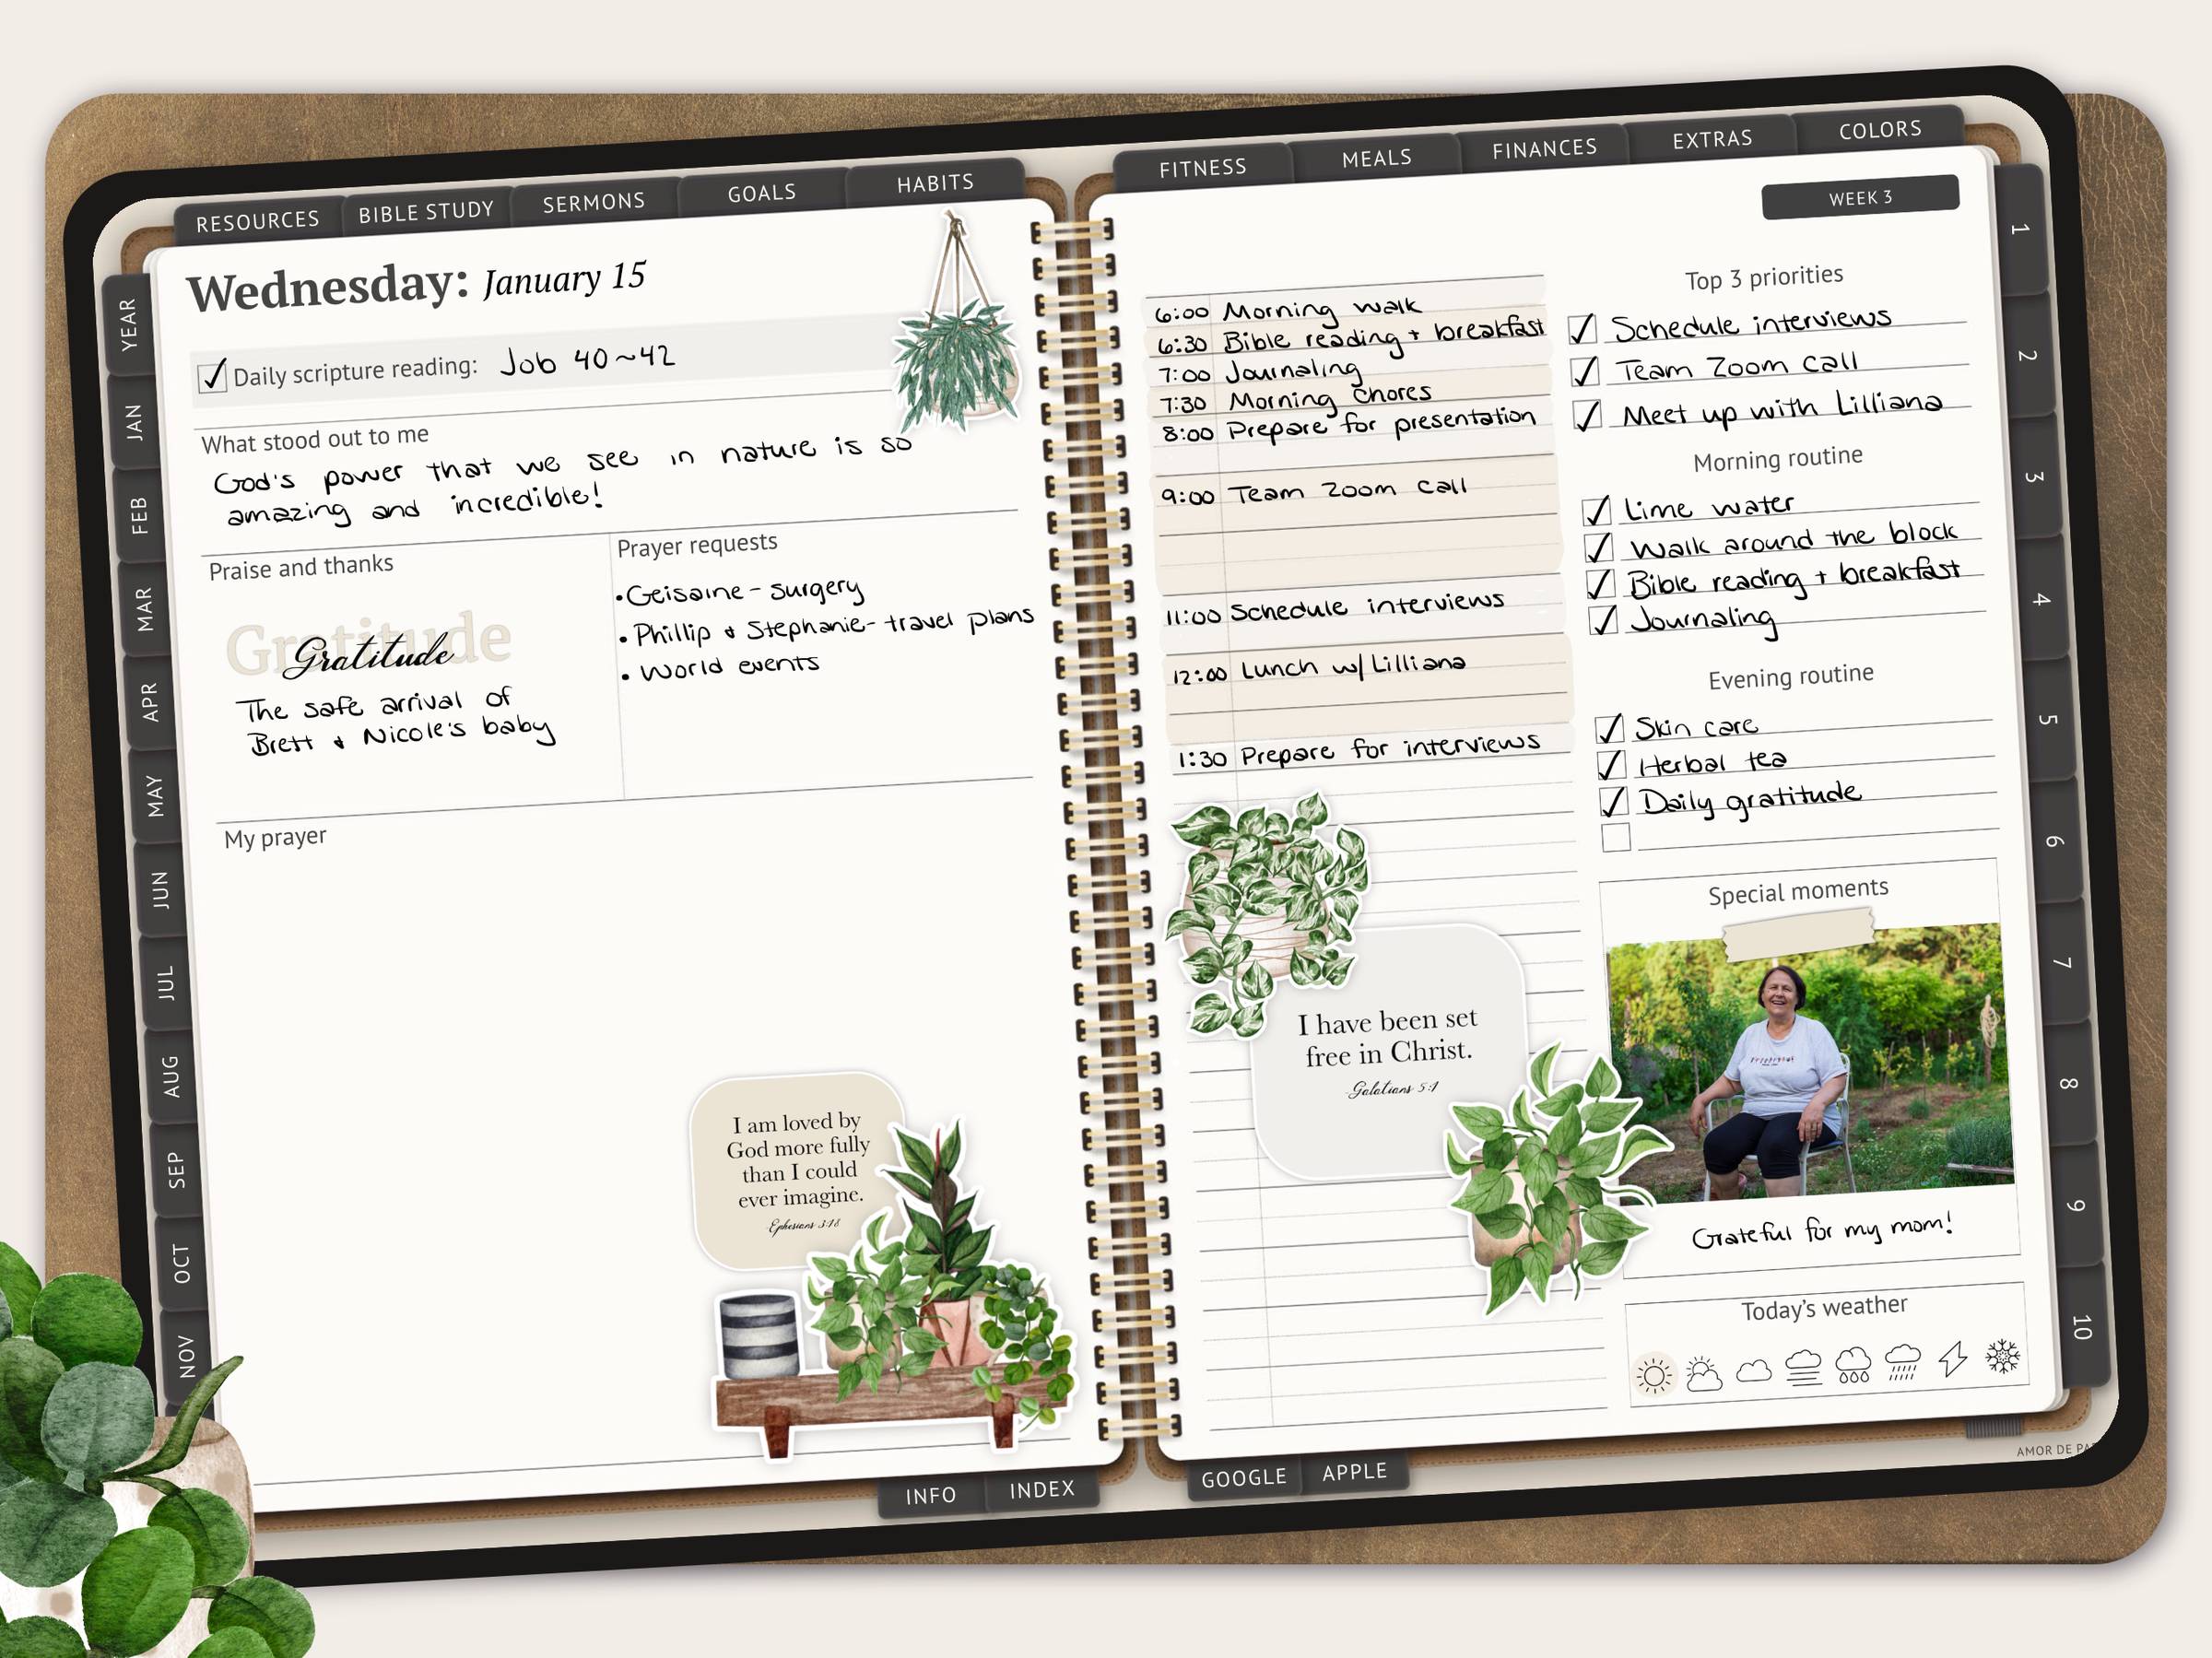 RESOURCES
BIBLE STUDY
SERMONS
GOALS
HABITS
FITNESS
MEALS
FINANCES
EXTRAS
COLORS
YEAR
JAN
FEB
MAR
APR
MAY
JUN
JUL
AUG
SEP
OCT
NOV
Wednesday: January 15
Daily scripture reading: Job 40~42
What stood out to me
God's power that we see in nature is so
amazing and incredible!
Praise and thanks
Gratitude
Gratitude
The safe arrival of
Brett & Nicole's baby
Prayer requests
•Geisaine - surgery
• Phillip & Stephanie - travel plans
• World events
My prayer
I am loved by
God more fully
than I could
ever imagine.
Ephesians 3:18
WEEK 3
6:00 Morning walk
6:30 Bible reading + breakfast
7:00 Journaling
7:30 Morning chores
8:00 Prepare for presentation
9:00 Team Zoom call
11:00 Schedule interviews
12:00 Lunch w/ Lilliana
1:30 Prepare for interviews
I have been set
free in Christ.
Galatians 5:1
Top 3 priorities
Schedule interviews
Team Zoom call
Meet up with Lilliana
Morning routine
Lime water
Walk around the block
Bible reading + breakfast
Journaling
Evening routine
Skin care
Herbal tea
Daily gratitude
Special moments
Grateful for my mom!
Today's weather
1
2
3
4
5
6
7
8
9
10
AMOR DE
INFO
INDEX
GOOGLE
APPLE